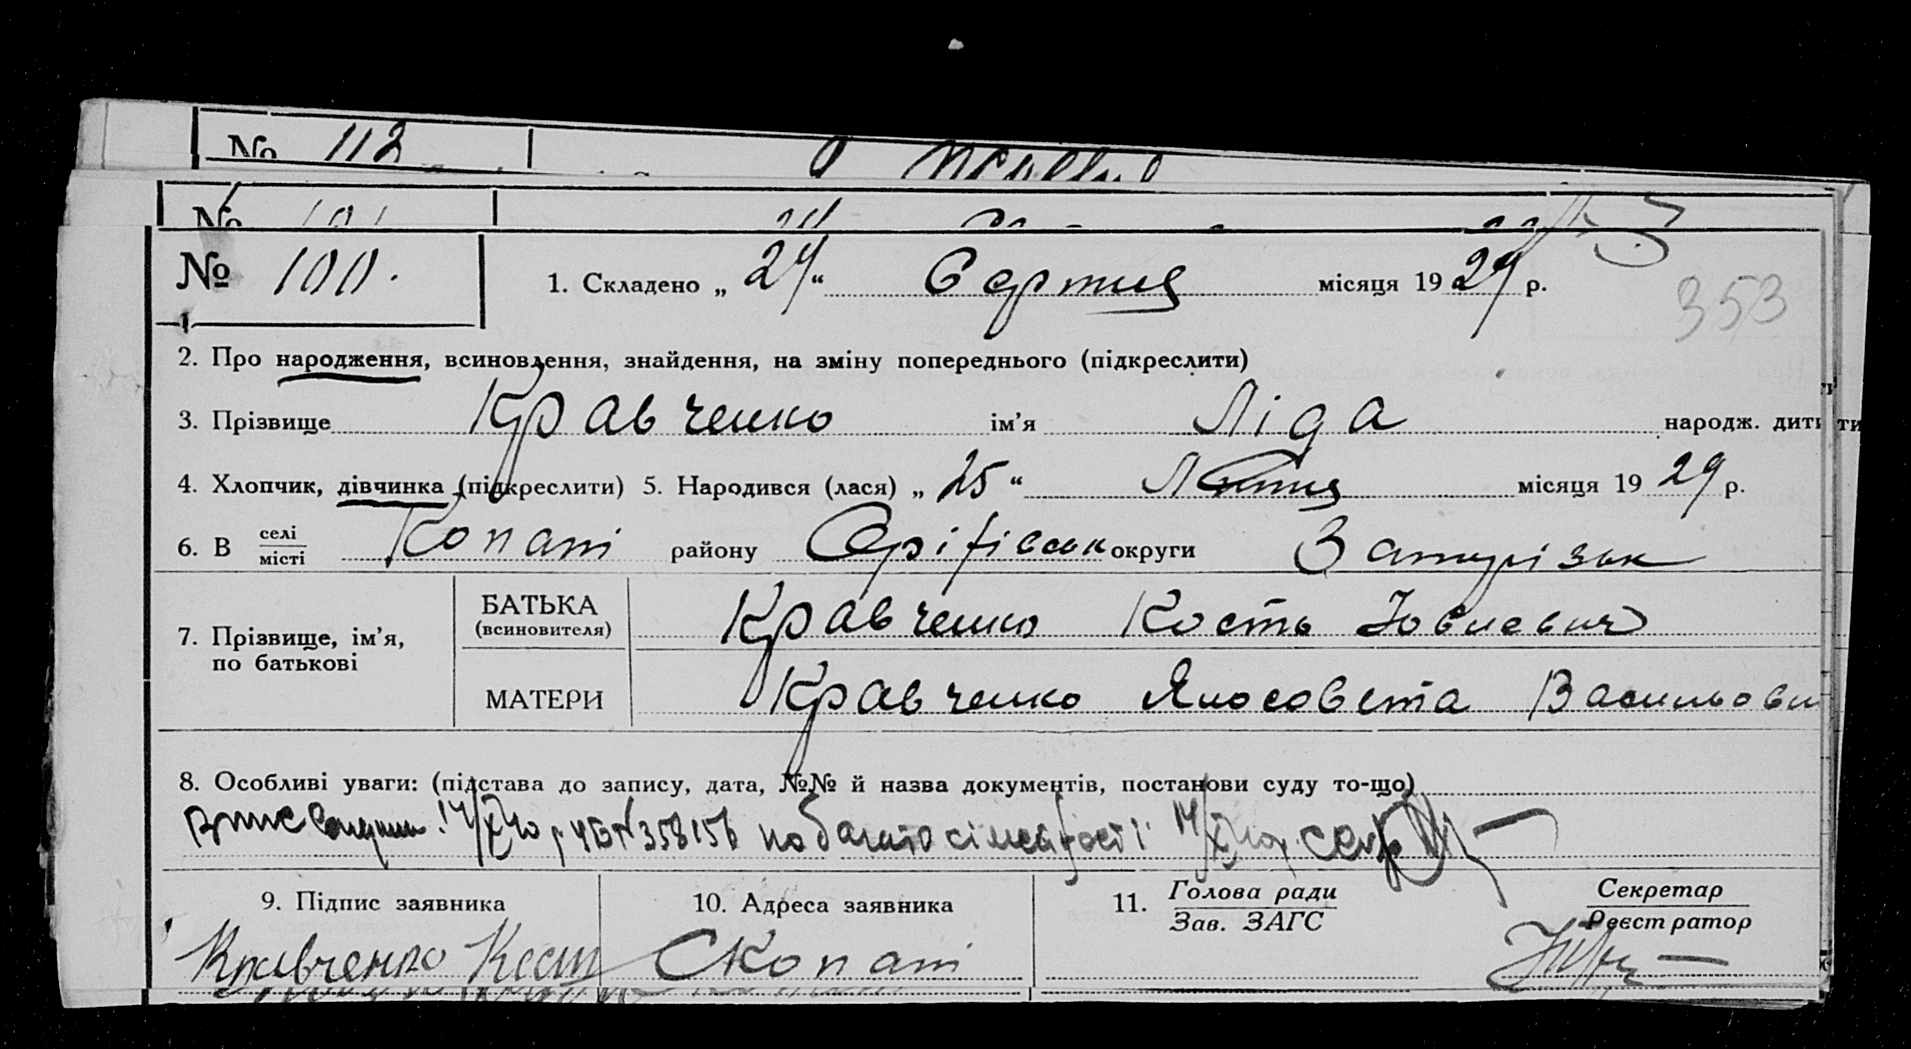 № 112
№ 101
№ 100.
1. Складено „ 24 “ Серпня місяця 19 29 р.
353
2. Про народження, всиновлення, знайдення, на зміну попереднього (підкреслити)
3. Прізвище Кравченко ім’я Ліда народж. дити
4. Хлопчик, дівчинка (підкреслити) 5. Народився (лася) „ 25 “ місяця 19 29 р.
6. В селі місті Копані району Оріхівськ округи Запорізьк
7. Прізвище, ім’я, по батькові
БАТЬКА (всиновителя) Кравченко Кость
МАТЕРИ Кравченко Ялосовета Васильовн
8. Особливі уваги: (підстава до запису, дата, №№ й назва документів, постанови суду то-що)
по багато сімейності
9. Підпис заявника
10. Адреса заявника
11. Голова ради Зав. ЗАГС
Секретар Реєстратор
Кравченко Кость С Копані